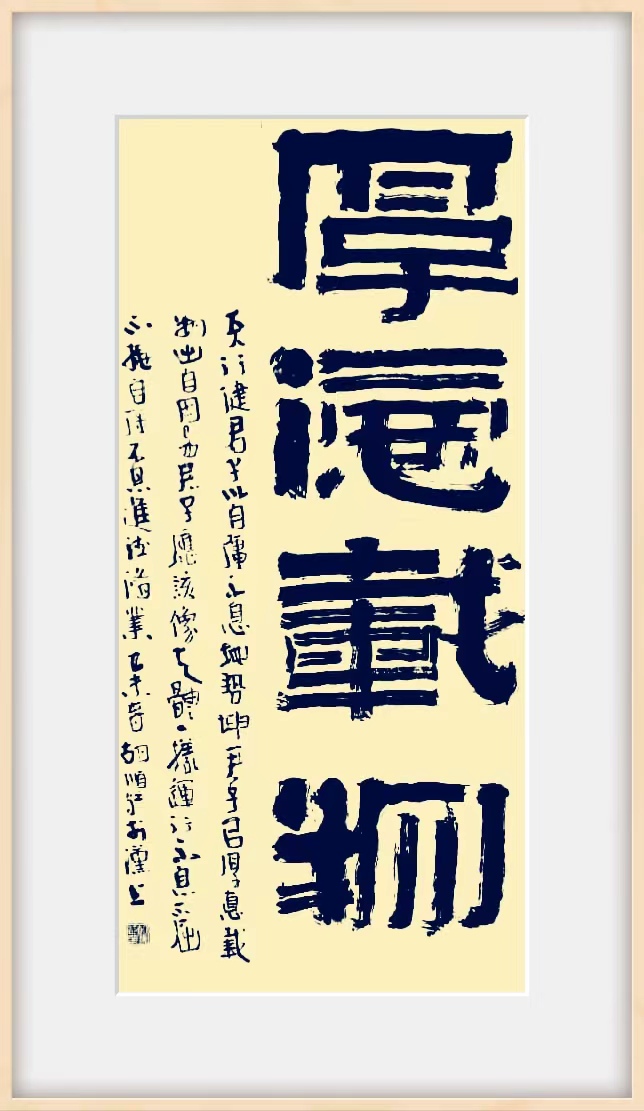 厚德載物
天行健君子以自彊不息地勢坤君子以厚惪載
物出自周易君子應該像天體一樣運行不息不屈
不撓自彊不息進德脩業乙未春胡順於漢上